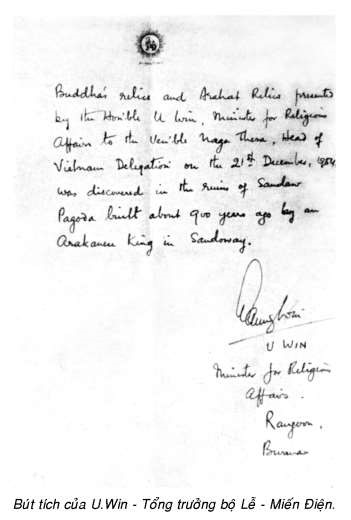 Buddha's relics and Arahat Relics presented
by the Hon'ble U Win, Minister for Religious
Affairs to the Ven'ble Naga Thera, Head of
Vietnam Delegation on the 21st December, 1954
was discovered in the ruins of Sandaw
Pagoda built about 900 years ago by an
Arakanese King in Sandoway.
U WIN
Minister for Religious
Affairs.
Rangoon,
Burma
Bút tích của U.Win - Tổng trưởng bộ Lễ - Miến Điện.